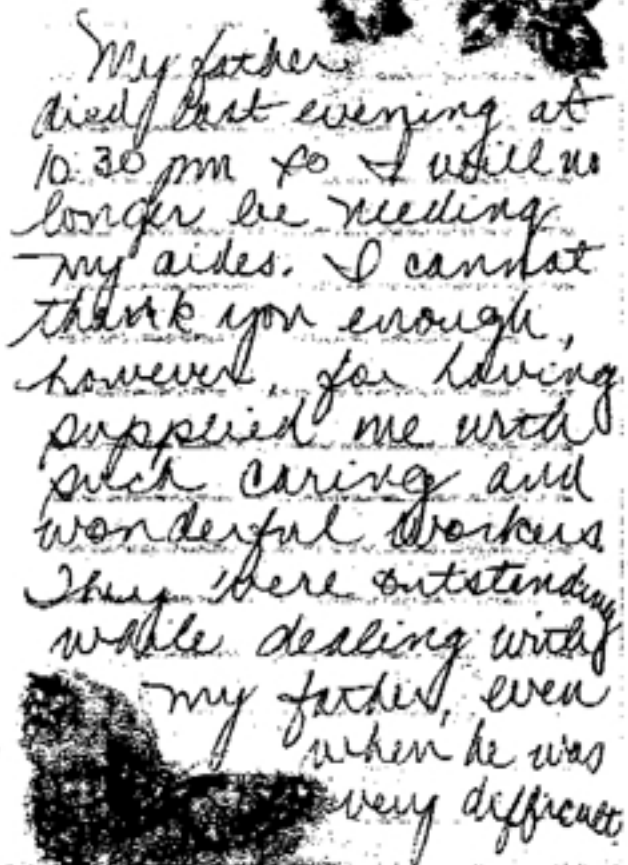 My father
died last evening at
10:30 pm so I will no
longer be needing
my aides. I cannot
thank you enough,
however, for having
supplied me with
such caring and
wonderful workers.
They were outstanding
while dealing with
my father, even
when he was
very difficult.